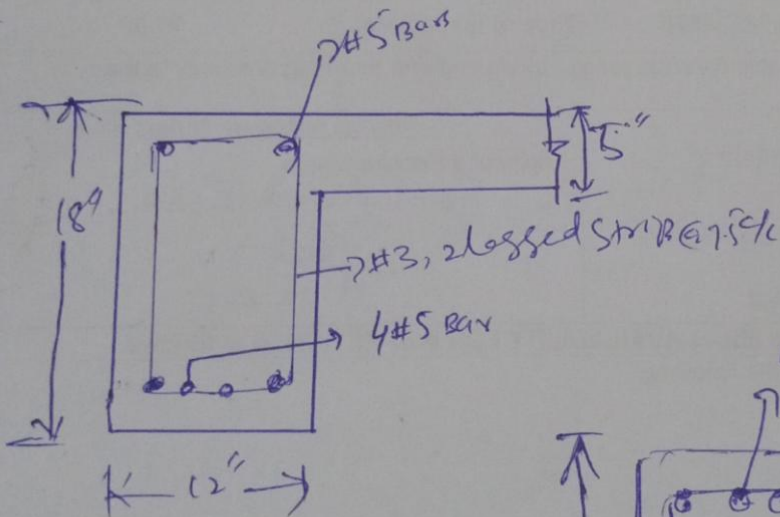 2#5 Bars
5"
18"
#3, 2legged Strip @7.5 c/c
4#5 Bar
12"